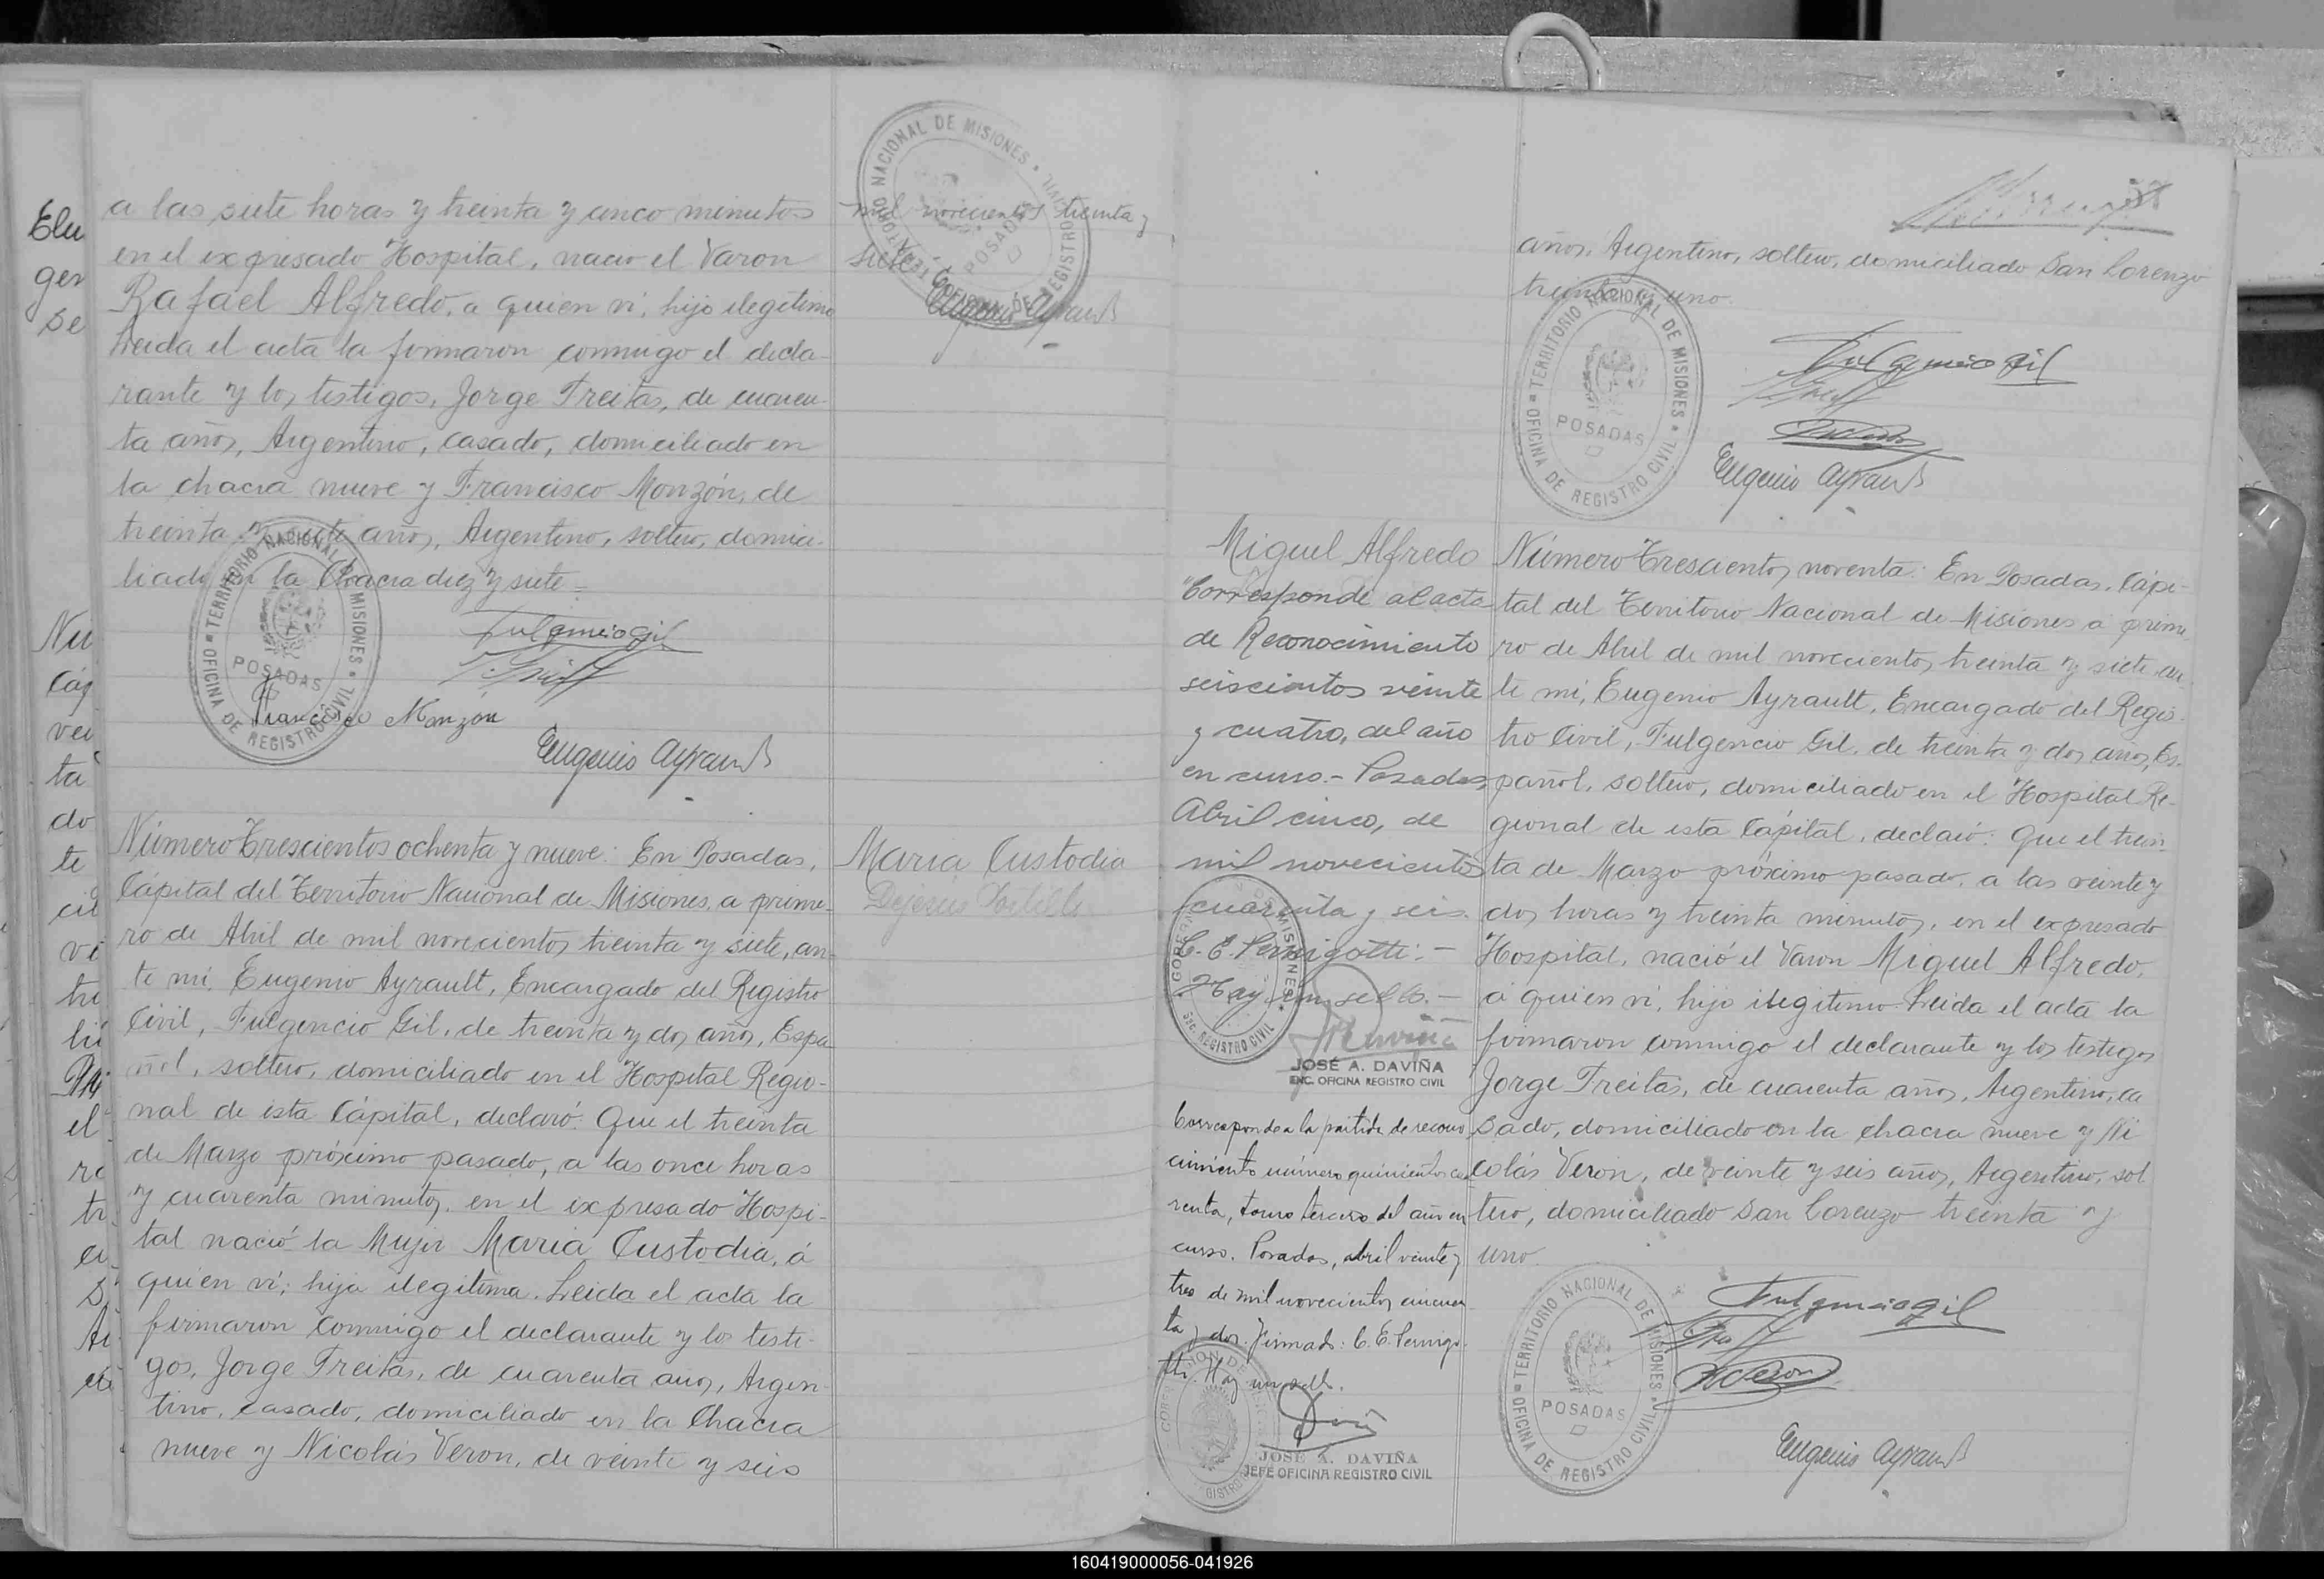 a las siete horas y treinta y cinco minutos
en el expresado Hospital, nació el Varon
Rafael Alfredo, a quien ví, hijo ilegítimo
Leida el acta la firmaron conmigo el decla-
rante y los testigos, Jorge Freitas, de cuaren-
ta años, Argentino, casado, domiciliado en
la chacra nueve y Francisco Monzón, de
treinta y siete años, Argentino, soltero, domici-
liado en la Chacra diez y siete =
Fulgencio Gil
Francisco Monzón
Eugenio Ayrault
TERRITORIO NACIONAL DE MISIONES
POSADAS
OFICINA DE REGISTRO CIVIL
mil novecientos treinta y
siete.
Eugenio Ayrault
TERRITORIO NACIONAL DE MISIONES
POSADAS
OFICINA DE REGISTRO CIVIL
Número Trescientos ochenta y nueve: En Posadas,
Cápital del Territorio Nacional de Misiones, a prime-
ro de Abril de mil novecientos treinta y siete, an-
te mí, Eugenio Ayrault, Encargado del Registro
Civil, Fulgencio Gil, de treinta y dos años, Espa-
ñol, soltero, domiciliado en el Hospital Regio-
nal de esta Cápital, declaró: Que el treinta
de Marzo próximo pasado, a las once horas
y cuarenta minutos, en el expresado Hospi-
tal nació la Mujer Maria Custodia, á
quien ví; hija ilegítima. Leida el acta la
firmaron conmigo el declarante y los testi-
gos, Jorge Freitas, de cuarenta años, Argen-
tino, casado, domiciliado en la Chacra
nueve y Nicolás Veron, de veinte y seis
Maria Custodia
años, Argentino, soltero, domiciliado San Lorenzo
treinta y uno.
Fulgencio Gil
Eugenio Ayrault
TERRITORIO NACIONAL DE MISIONES
POSADAS
OFICINA DE REGISTRO CIVIL
Miguel Alfredo
"Corresponde al acta
de Reconocimiento
seiscientos veinte
y cuatro, del año
en curso.- Posadas,
Abril cinco, de
mil novecientos
cuarenta y seis.
C. E. Pernigotti. -
Hay un sello. -
JOSÉ A. DAVIÑA
ENC. OFICINA REGISTRO CIVIL
Corresponde a la partida de recono
cimiento número quinientos cua
renta, tomo tercero del año en
curso. Posadas, abril veinte y
tres de mil novecientos cincuen
ta y dos. Firmado: C. E. Pernigo-
tti. Hay un sello.
JOSÉ A. DAVIÑA
JEFE OFICINA REGISTRO CIVIL
Número Trescientos noventa: En Posadas, Cápi-
tal del Territorio Nacional de Misiones a prime-
ro de Abril de mil novecientos treinta y siete, an-
te mí, Eugenio Ayrault, Encargado del Regis-
tro Civil, Fulgencio Gil, de treinta y dos años, Es-
pañol, soltero, domiciliado en el Hospital Re-
gional de esta Cápital, declaró: Que el trein-
ta de Marzo próximo pasado, a las veinte y
dos horas y treinta minutos, en el expresado
Hospital, nació el Varon Miguel Alfredo,
á quien ví, hijo ilegítimo. Leida el acta la
firmaron conmigo el declarante y los testigos
Jorge Freitas, de cuarenta años, Argentino, ca
sado, domiciliado en la chacra nueve y Ni
colás Veron, de veinte y seis años, Argentino, sol
tero, domiciliado San Lorenzo treinta y
uno.
Fulgencio Gil
N Veron
Eugenio Ayrault
TERRITORIO NACIONAL DE MISIONES
POSADAS
OFICINA DE REGISTRO CIVIL
160419000056-041926